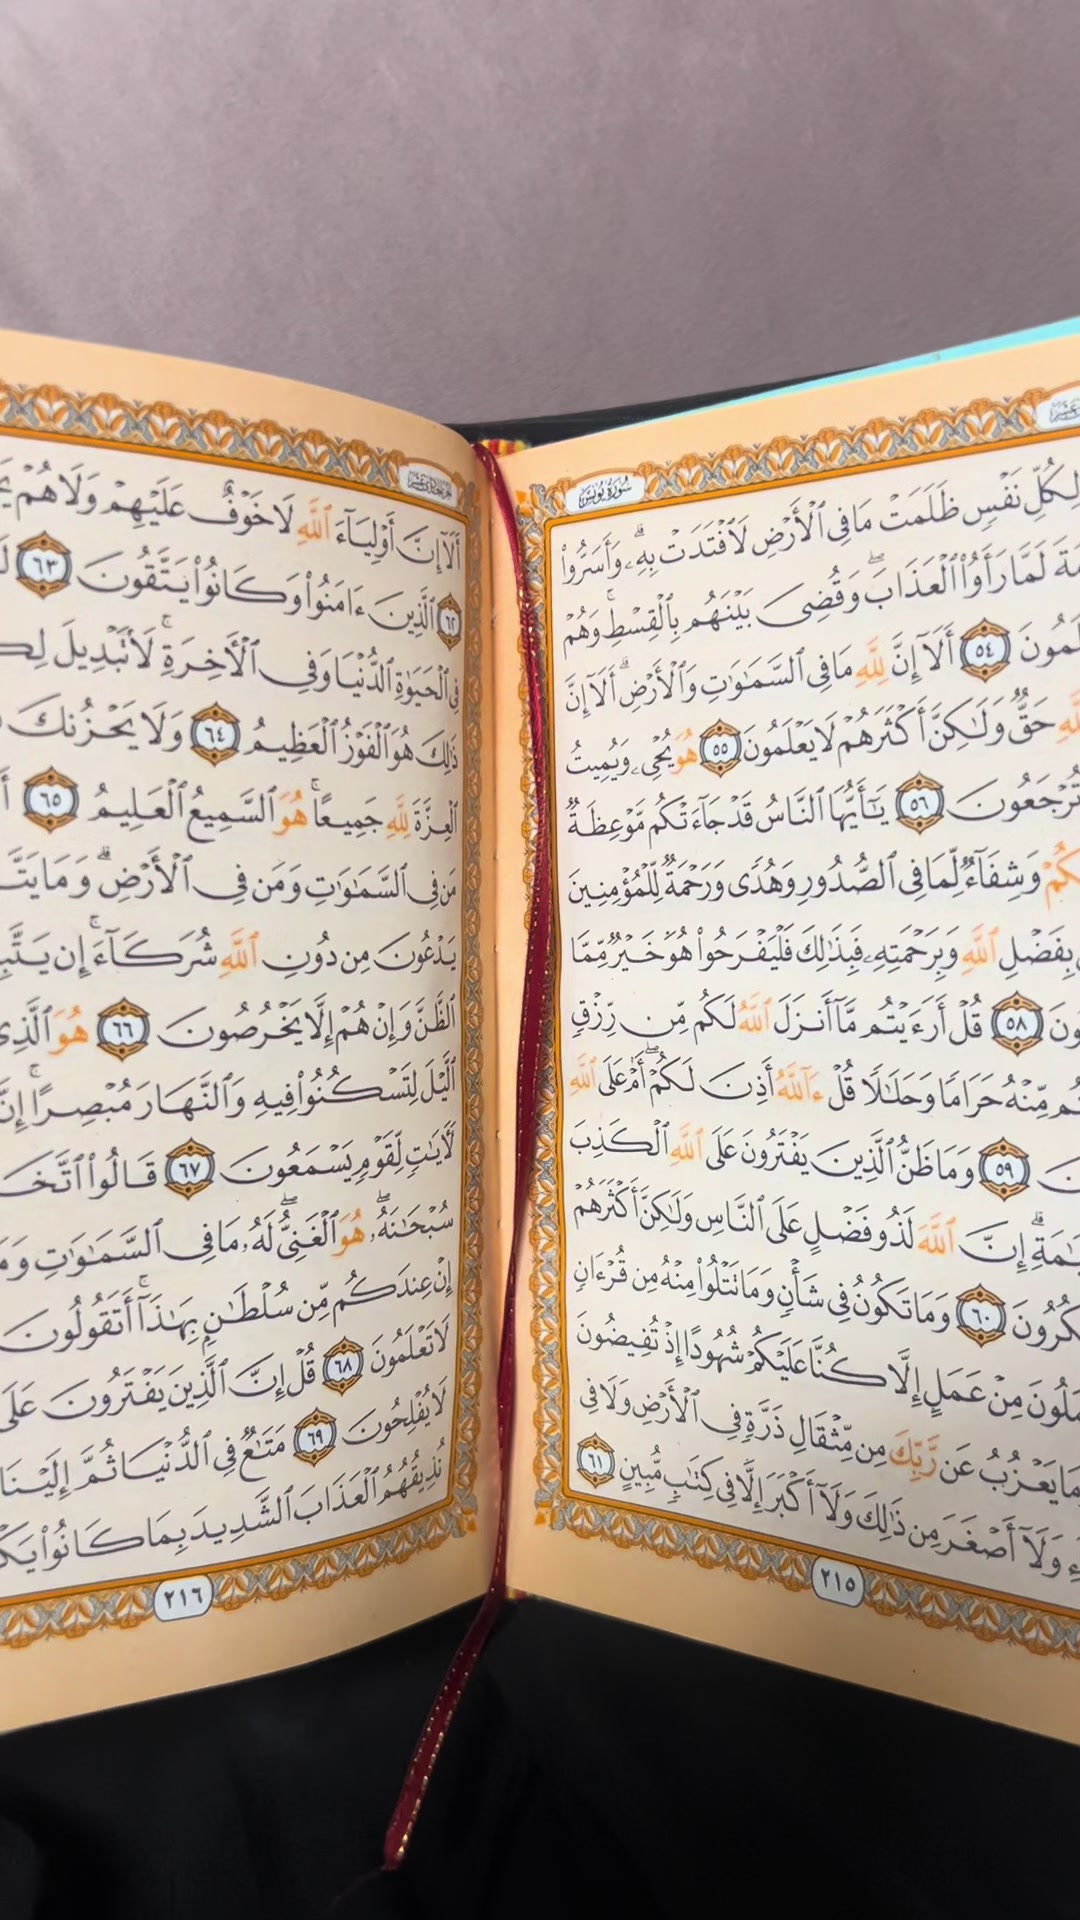 سُورَةُ يُونُسَ
لِكُلِّ نَفْسٍ ظَلَمَتْ مَا فِي ٱلْأَرْضِ لَٱفْتَدَتْ بِهِۦۗ وَأَسَرُّوا۟
لَمَّا رَأَوُا۟ ٱلْعَذَابَۖ وَقُضِىَ بَيْنَهُم بِٱلْقِسْطِۚ وَهُمْ
٥٤ أَلَآ إِنَّ لِلَّهِ مَا فِى ٱلسَّمَٰوَٰتِ وَٱلْأَرْضِۗ أَلَآ إِنَّ
حَقٌّ وَلَٰكِنَّ أَكْثَرَهُمْ لَا يَعْلَمُونَ ٥٥ هُوَ يُحْىِۦ وَيُمِيتُ
تُرْجَعُونَ ٥٦ يَٰٓأَيُّهَا ٱلنَّاسُ قَدْ جَآءَتْكُم مَّوْعِظَةٌ
وَشِفَآءٌ لِّمَا فِى ٱلصُّدُورِ وَهُدًى وَرَحْمَةٌ لِّلْمُؤْمِنِينَ
بِفَضْلِ ٱللَّهِ وَبِرَحْمَتِهِۦ فَبِذَٰلِكَ فَلْيَفْرَحُوا۟ هُوَ خَيْرٌ مِّمَّا
٥٨ قُلْ أَرَءَيْتُم مَّآ أَنزَلَ ٱللَّهُ لَكُم مِّن رِّزْقٍ
مِّنْهُ حَرَامًا وَحَلَٰلًا قُلْ ءَآللَّهُ أَذِنَ لَكُمْۖ أَمْ عَلَى ٱللَّهِ
٥٩ وَمَا ظَنُّ ٱلَّذِينَ يَفْتَرُونَ عَلَى ٱللَّهِ ٱلْكَذِبَ
إِنَّ ٱللَّهَ لَذُو فَضْلٍ عَلَى ٱلنَّاسِ وَلَٰكِنَّ أَكْثَرَهُمْ
٦٠ وَمَا تَكُونُ فِى شَأْنٍ وَمَا تَتْلُوا۟ مِنْهُ مِن قُرْءَانٍ
مِنْ عَمَلٍ إِلَّا كُنَّا عَلَيْكُمْ شُهُودًا إِذْ تُفِيضُونَ
يَعْزُبُ عَن رَّبِّكَ مِن مِّثْقَالِ ذَرَّةٍ فِى ٱلْأَرْضِ وَلَا فِى
وَلَآ أَصْغَرَ مِن ذَٰلِكَ وَلَآ أَكْبَرَ إِلَّا فِى كِتَٰبٍ مُّبِينٍ ٦١
٢١٥
أَلَآ إِنَّ أَوْلِيَآءَ ٱللَّهِ لَا خَوْفٌ عَلَيْهِمْ وَلَا هُمْ
٦٢ ٱلَّذِينَ ءَامَنُوا۟ وَكَانُوا۟ يَتَّقُونَ ٦٣
فِى ٱلْحَيَوٰةِ ٱلدُّنْيَا وَفِى ٱلْأَخِرَةِۚ لَا تَبْدِيلَ
ذَٰلِكَ هُوَ ٱلْفَوْزُ ٱلْعَظِيمُ ٦٤ وَلَا يَحْزُنكَ
ٱلْعِزَّةَ لِلَّهِ جَمِيعًاۚ هُوَ ٱلسَّمِيعُ ٱلْعَلِيمُ ٦٥
مَن فِى ٱلسَّمَٰوَٰتِ وَمَن فِى ٱلْأَرْضِۗ وَمَا
يَدْعُونَ مِن دُونِ ٱللَّهِ شُرَكَآءَۚ إِن
ٱلظَّنَّ وَإِنْ هُمْ إِلَّا يَخْرُصُونَ ٦٦ هُوَ ٱلَّذِى
ٱلَّيْلَ لِتَسْكُنُوا۟ فِيهِ وَٱلنَّهَارَ مُبْصِرًاۚ إِنَّ
لَأَيَٰتٍ لِّقَوْمٍ يَسْمَعُونَ ٦٧ قَالُوا۟
سُبْحَٰنَهُۥۖ هُوَ ٱلْغَنِىُّۖ لَهُۥ مَا فِى ٱلسَّمَٰوَٰتِ
إِنْ عِندَكُم مِّن سُلْطَٰنٍۭ بِهَٰذَآۚ أَتَقُولُونَ
لَا تَعْلَمُونَ ٦٨ قُلْ إِنَّ ٱلَّذِينَ يَفْتَرُونَ عَلَى
لَا يُفْلِحُونَ ٦٩ مَتَٰعٌ فِى ٱلدُّنْيَا ثُمَّ إِلَيْنَا
نُذِيقُهُمُ ٱلْعَذَابَ ٱلشَّدِيدَ بِمَا كَانُوا۟
٢١٦